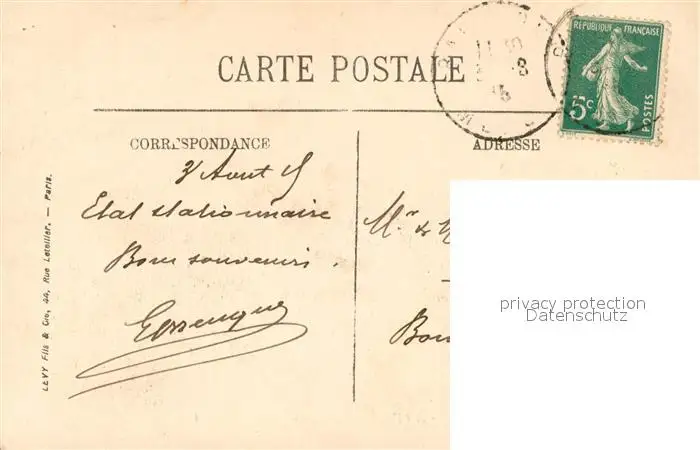 CARTE POSTALE
RÉPUBLIQUE FRANÇAISE
5c
POSTES
11 30
8
15
CORRESPONDANCE
ADRESSE
3 Aout 15
Etat stationnaire
Bons souvenirs.
Mr &
Bou
LEVY Fils & Cie, 44, Rue Letellier. — Paris.
privacy protection
Datenschutz